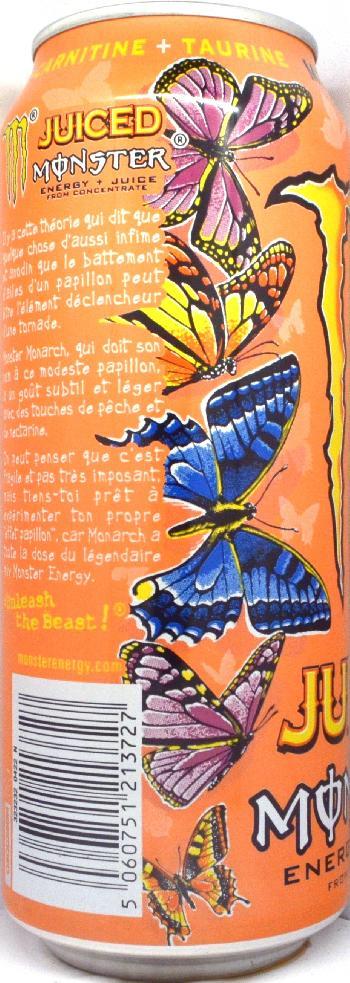 CARNITINE + TAURINE
JUICED
MONSTER
ENERGY + JUICE
FROM CONCENTRATE
cette théorie qui dit que
chose d'aussi infime
anodin que le battement
d'ailes d'un papillon peut
être l'élément déclencheur
d'une tornade.
Monster Monarch, qui doit son
à ce modeste papillon,
un goût subtil et léger
avec des touches de pêche et
de nectarine.
On peut penser que c'est
fragile et pas très imposant,
mais tiens-toi prêt à
expérimenter ton propre
"effet papillon", car Monarch a
toute la dose du légendaire
Monster Energy.
Unleash
the Beast!®
monsterenergy.com
5 060751 213727
JU
MON
ENER
FRO